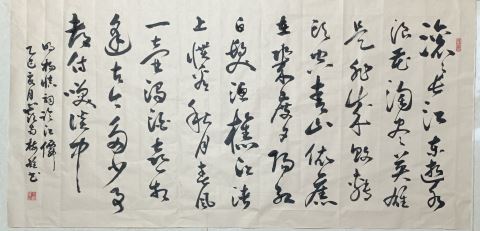 滚滚长江东逝水
浪花淘尽英雄
是非成败转
头空青山依旧
在几度夕阳红
白发渔樵江渚
上惯看秋月春风
一壶浊酒喜相
逢古今多少事
都付笑谈中
明杨慎词临江仙
乙巳